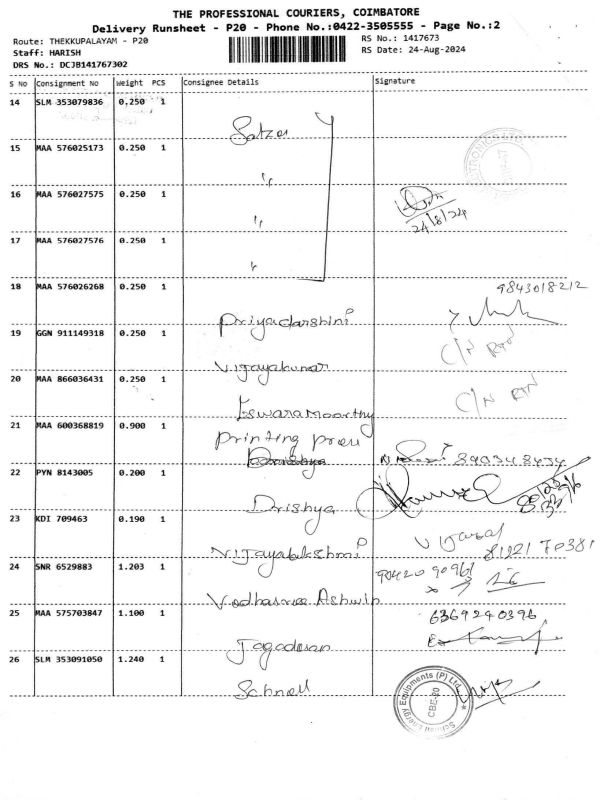 THE PROFESSIONAL COURIERS, COIMBATORE
Delivery Runsheet - P20 - Phone No.:0422-3505555 - Page No.:2
Route: THEKKUPALAYAM - P20
Staff: HARISH
DRS No.: DCJB141767302
RS No.: 1417673
RS Date: 24-Aug-2024
S No Consignment No Weight PCS Consignee Details Signature
14 SLM 353079836 0.250 1
15 MAA 576025173 0.250 1
16 MAA 576027575 0.250 1
24/8/24
17 MAA 576027576 0.250 1
18 MAA 576026268 0.250 1 9843018212
Priyadarshini
19 GGN 911149318 0.250 1 C/N RTN
Vijayakumar
20 MAA 866036431 0.250 1 C/N RTN
Eswaramoorthy
21 MAA 600368819 0.900 1
printing press
22 PYN 8143005 0.200 1
Drishya
23 KDI 709463 0.190 1
Vijayalakshmi
24 SNR 6529883 1.203 1
Ashwin
25 MAA 575703847 1.100 1 6369240396
Jagadesan
26 SLM 353091050 1.240 1
Schnell
Schnell Energy Equipments (P) Ltd.
CBE-20